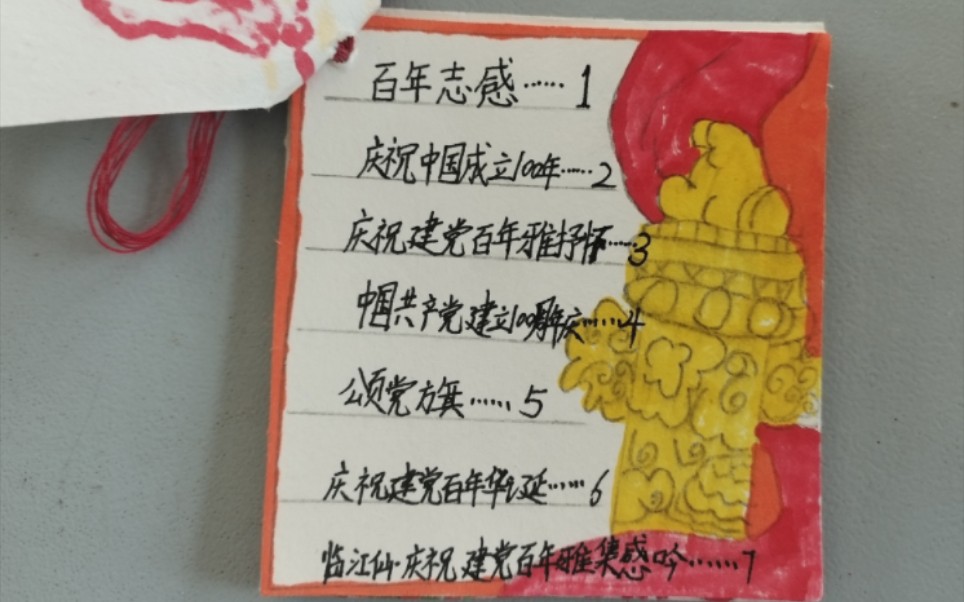 百年志感……1
庆祝中国成立100年……2
庆祝建党百年雅抒怀……3
中国共产党建立100周年庆……4
颂党旗……5
庆祝建党百年华诞……6
临江仙·庆祝建党百年雅集感吟……7